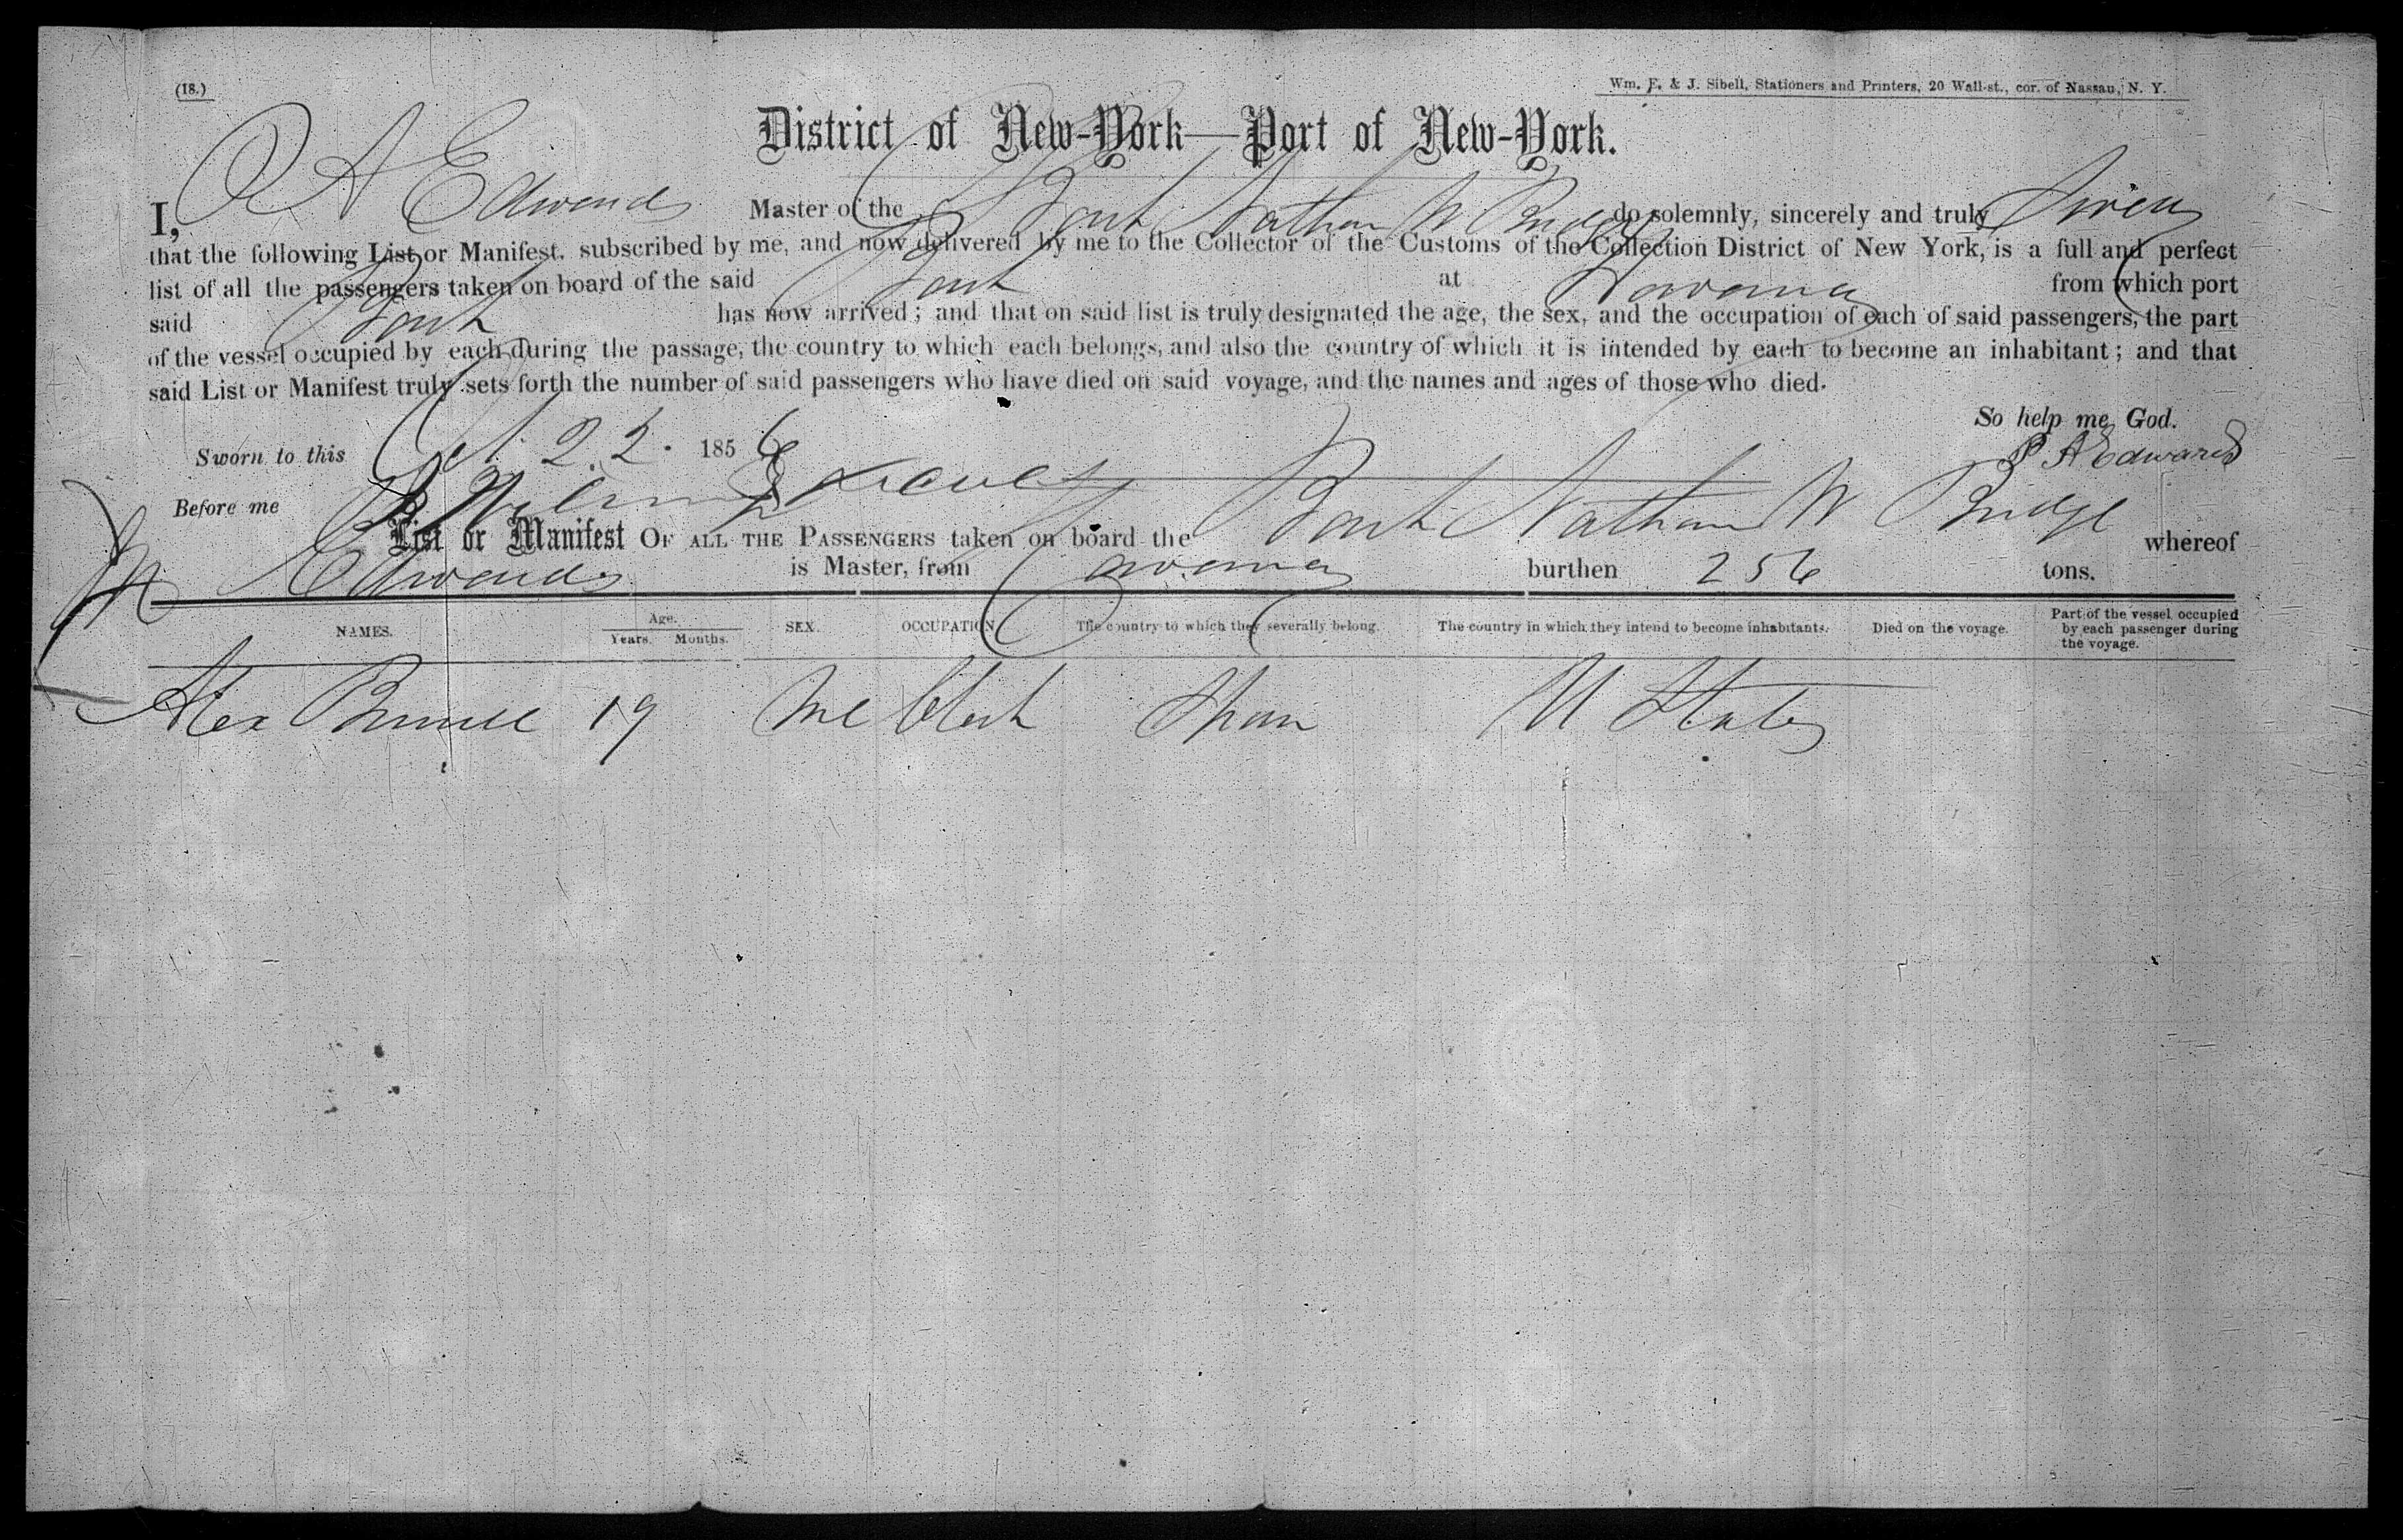 (18.)
Wm. E. & J. Sibell, Stationers and Printers, 20 Wall-st., cor. of Nassau, N. Y.
District of New-York—Port of New-York.
I, A Edwards Master of the Bark Nathan W Bridge do solemnly, sincerely and truly Swear
that the following List or Manifest, subscribed by me, and now delivered by me to the Collector of the Customs of the Collection District of New York, is a full and perfect
list of all the passengers taken on board of the said Bark at Havana from which port
said Bark has now arrived; and that on said list is truly designated the age, the sex, and the occupation of each of said passengers, the part
of the vessel occupied by each during the passage, the country to which each belongs, and also the country of which it is intended by each to become an inhabitant; and that
said List or Manifest truly sets forth the number of said passengers who have died on said voyage, and the names and ages of those who died.
So help me God.
Sworn to this Oct. 22. 1856
A Edwards
Before me
List or Manifest OF ALL THE PASSENGERS taken on board the Bark Nathan W Bridge whereof
Edwards is Master, from Havana burthen 256 tons.
NAMES. Age. Years. Months. SEX. OCCUPATION The country to which they severally belong. The country in which they intend to become inhabitants. Died on the voyage. Part of the vessel occupied by each passenger during the voyage.
Alex 19 Clerk Spain U States